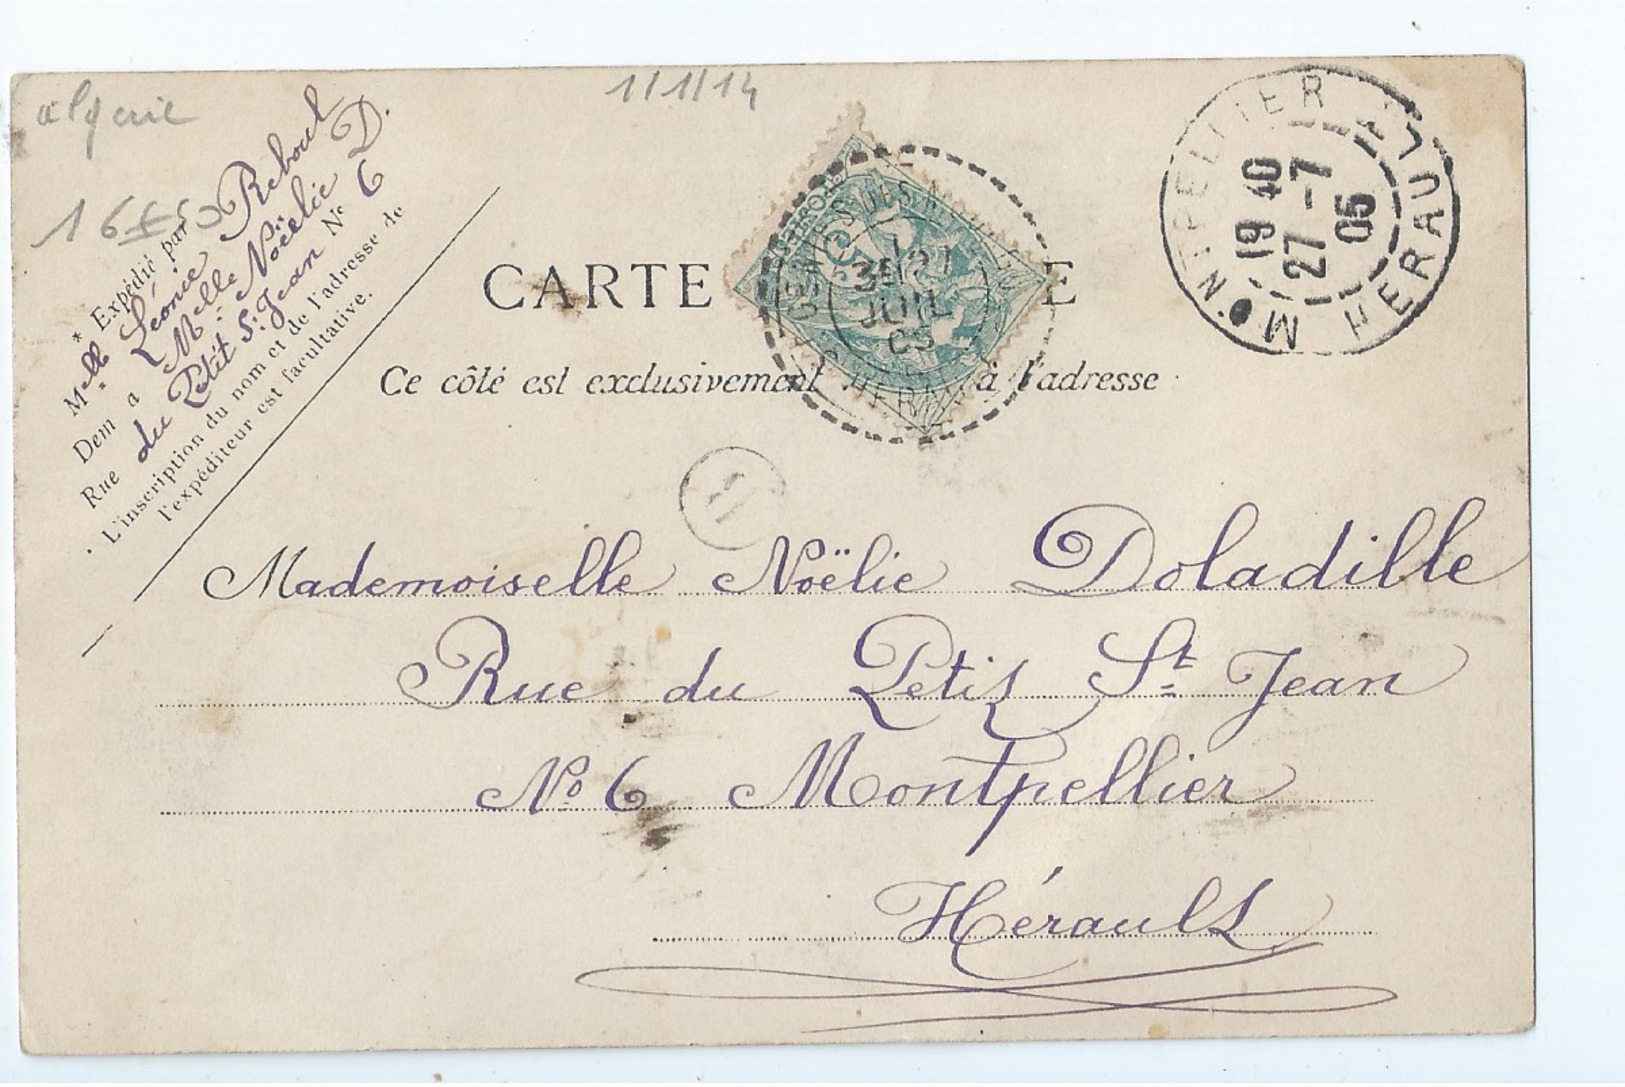 algerie
1/1/14
16f50
* Expédié par
Melle Léonie Reboul
Dem a Melle Noëlie D.
Rue du Petit St Jean No 6
L'inscription du nom et de l'adresse de
l'expéditeur est facultative.
CARTE E
Ce côté est exclusivement à l'adresse
POSTES
JUIL
05
HERAULT
MONTPELLIER
HERAULT
19 40
27 -7
05
Mademoiselle Noëlie Doladille
Rue du Petit St Jean
No 6 Montpellier
Hérault